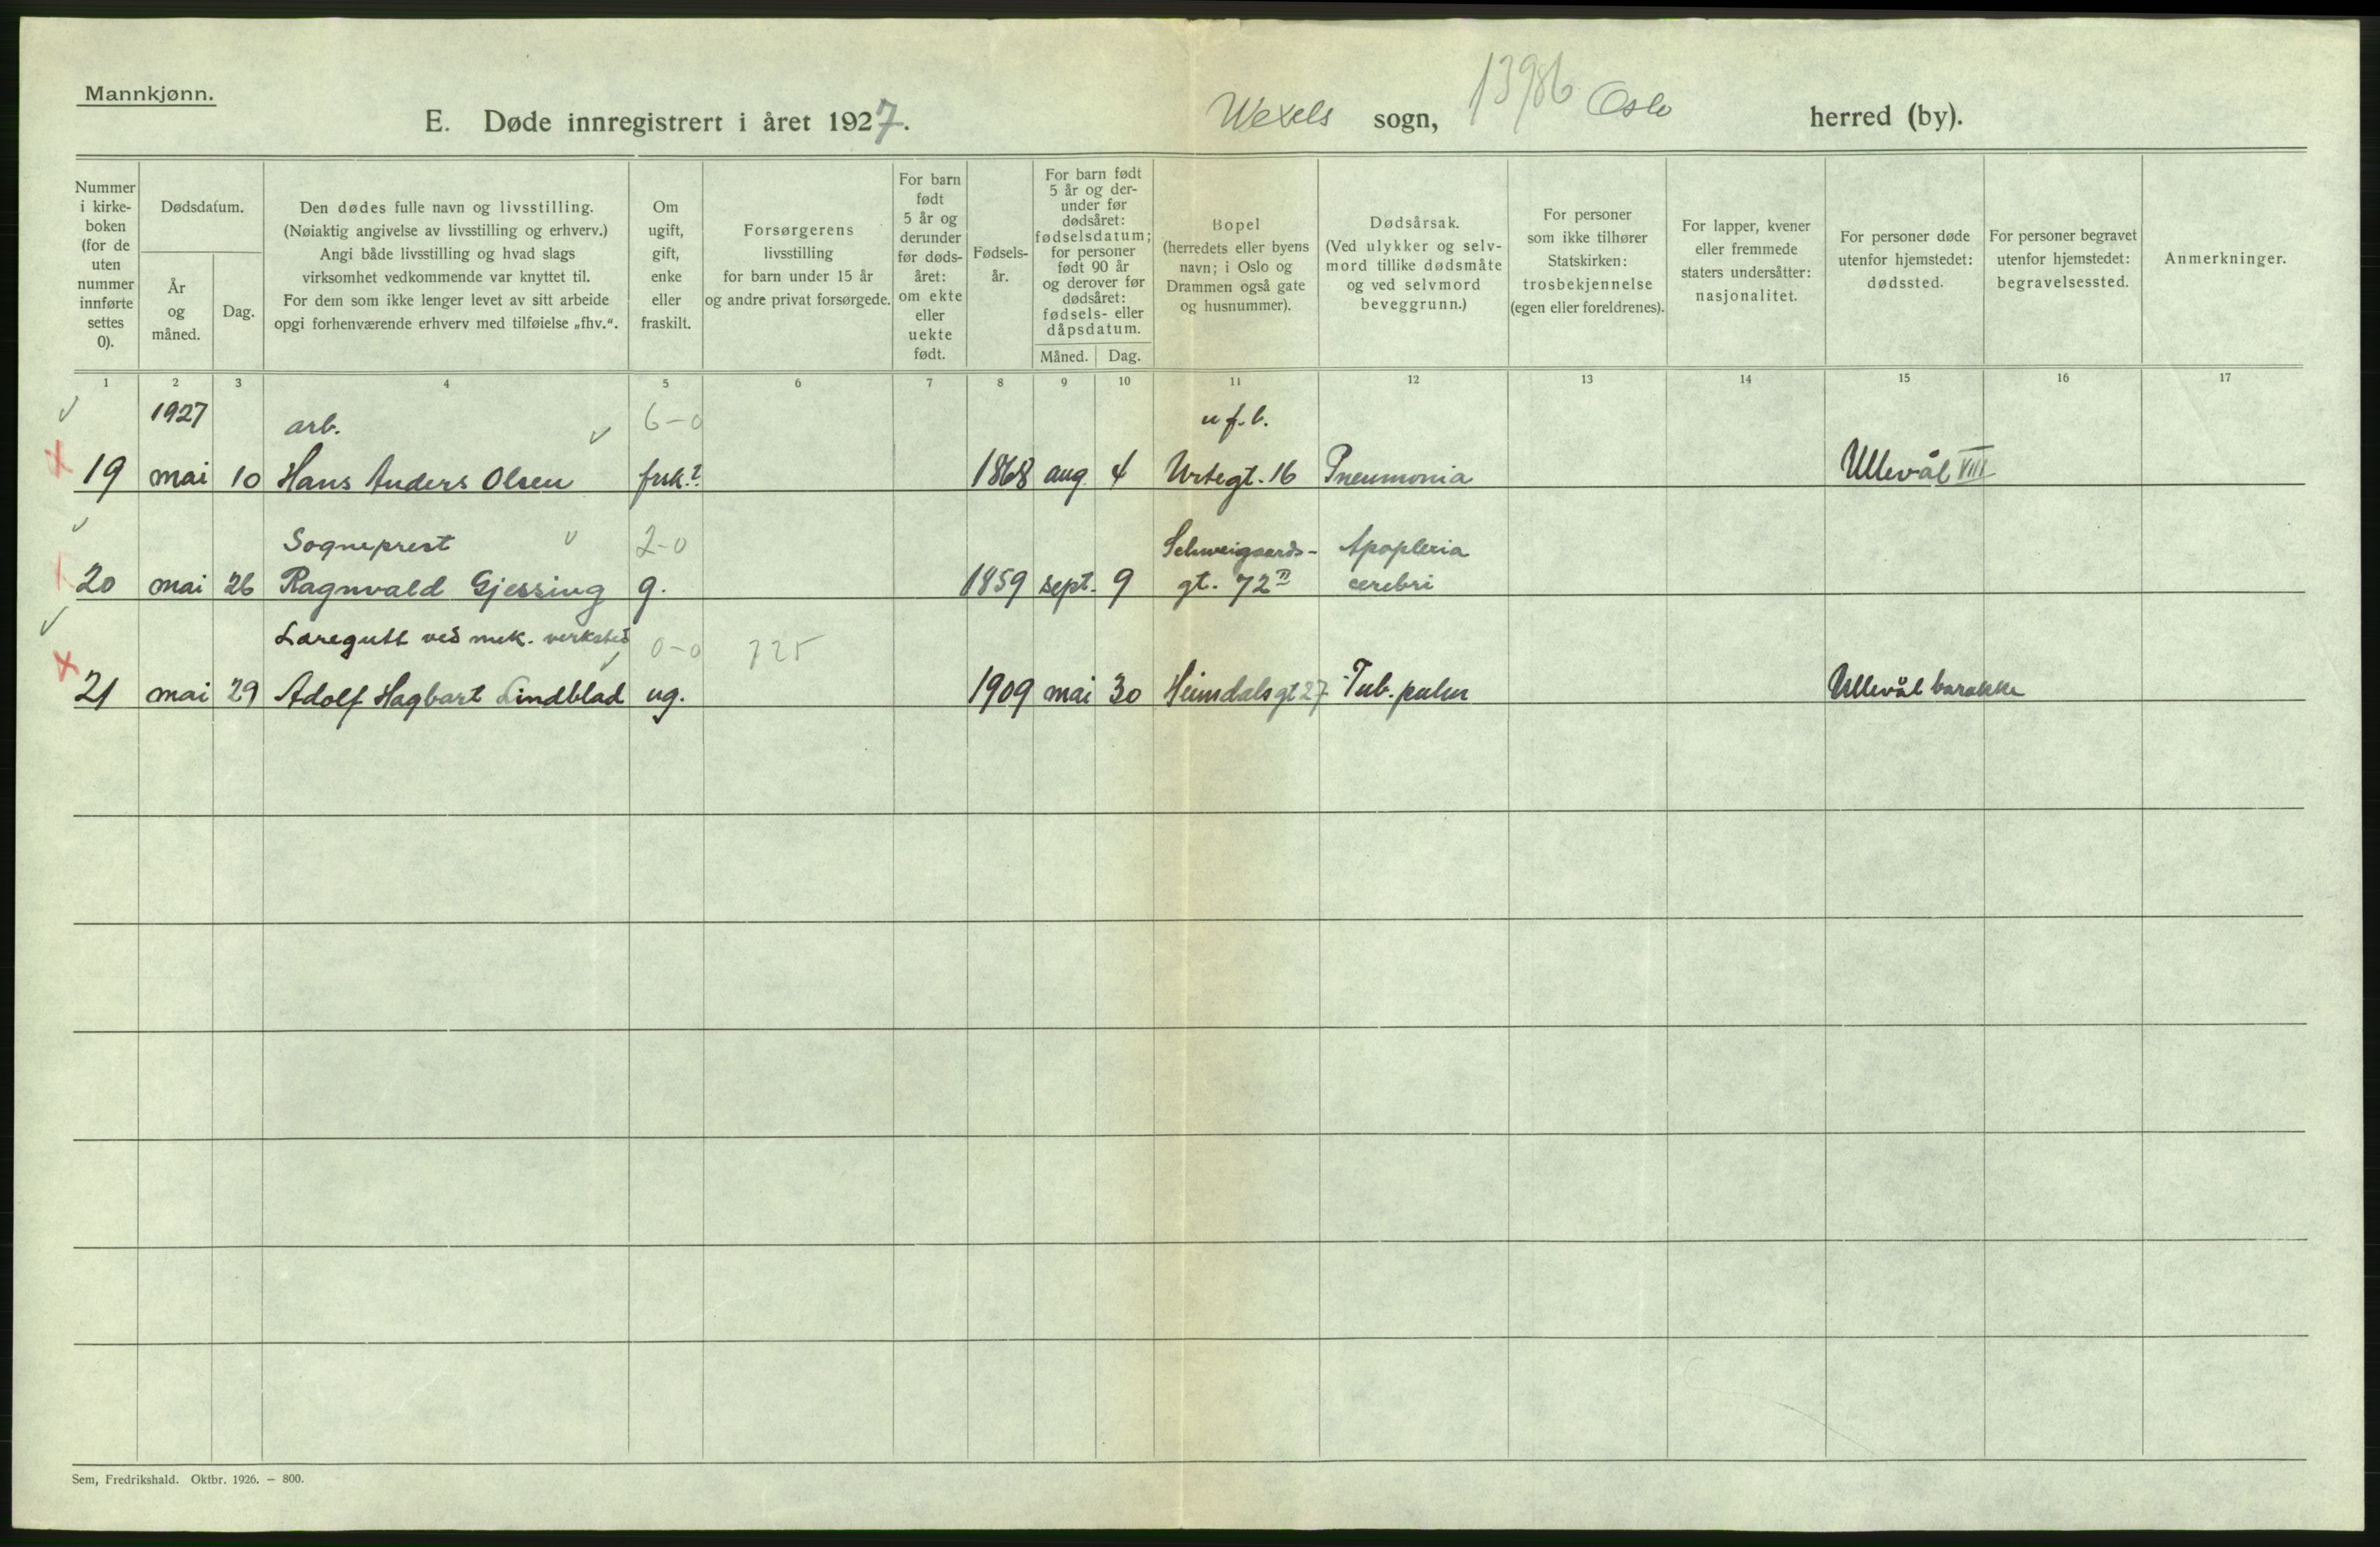 Mannkjønn.
E. Døde innregistrert i året 1927.
Wexels sogn, 13986 Oslo herred (by).
Nummer i kirke-boken (for de uten nummer innførte settes 0).
Dødsdatum.
År og måned.
Dag.
Den dødes fulle navn og livsstilling.
(Nøiaktig angivelse av livsstilling og erhverv.)
Angi både livsstilling og hvad slags
virksomhet vedkommende var knyttet til.
For dem som ikke lenger levet av sitt arbeide
opgi forhenværende erhverv med tilføielse „fhv.“.
Om ugift, gift, enke eller fraskilt.
Forsørgerens
livsstilling
for barn under 15 år
og andre privat forsørgede.
For barn født 5 år og derunder før døds-året: om ekte eller uekte født.
Fødsels-år.
For barn født
5 år og der-
under før
dødsåret:
fødselsdatum;
for personer
født 90 år
og derover før
dødsåret:
fødsels- eller
dåpsdatum.
Måned. Dag.
Bopel
(herredets eller byens
navn; i Oslo og
Drammen også gate
og husnummer).
Dødsårsak.
(Ved ulykker og selv-
mord tillike dødsmåte
og ved selvmord
beveggrunn.)
For personer
som ikke tilhører
Statskirken:
trosbekjennelse
(egen eller foreldrenes).
For lapper, kvener
eller fremmede
staters undersåtter:
nasjonalitet.
For personer døde
utenfor hjemstedet:
dødssted.
For personer begravet
utenfor hjemstedet:
begravelsessted.
Anmerkninger.
1 2 3 4 5 6 7 8 9 10 11 12 13 14 15 16 17
1927 arb. 6-0 u.f.b.
19 mai 10 Hans Anders Olsen frsk.? 1868 aug. 4 Urtegt. 16 Pneumonia Ullevål VIII
Sogneprest 2-0 Schweigaards- Apoplexia
20 mai 26 Ragnvald Gjessing g. 1859 sept. 9 gt. 72 II cerebri
Læregutt ved mek. verksted 0-0 725
21 mai 29 Adolf Hagbart Lindblad ug. 1909 mai 30 Heimdalsgt 27 Tub. pulm Ullevål barakke
Sem, Fredrikshald. Oktbr. 1926. — 800.